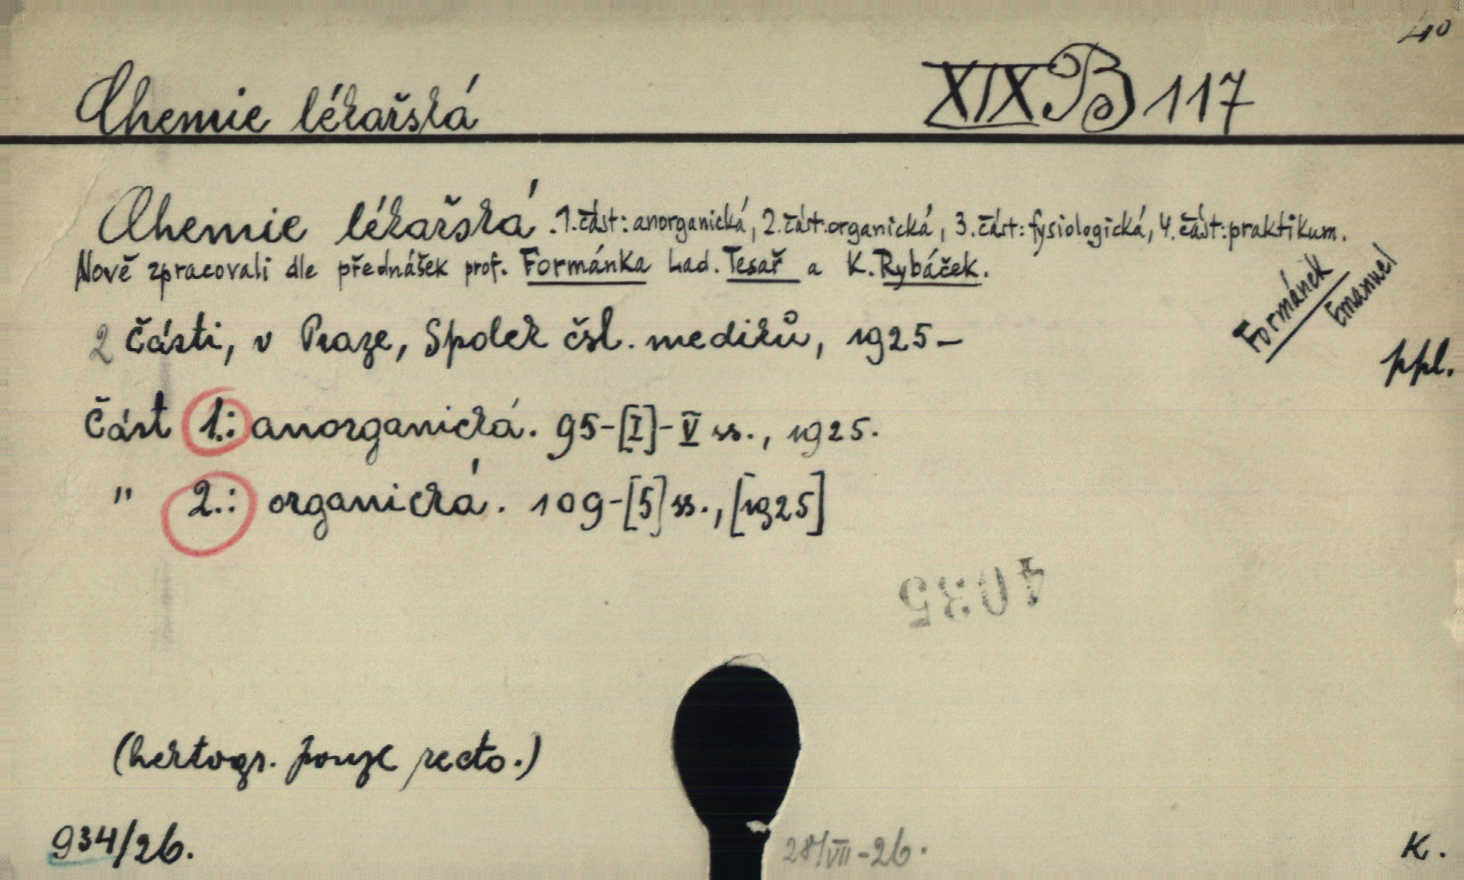 40
Chemie lékařská
XIX B 117
Chemie lékařská. 1. část: anorganická, 2. část: organická, 3. část: fysiologická, 4. část: praktikum.
Nově zpracovali dle přednášek prof. Formánka Lad. Tesař a K. Rybáček.
Formánek
Emanuel
2 části, v Praze, Spolek čsl. mediků, 1925–
ppl.
Část 1.: anorganická. 95-[I]-V ss., 1925.
" 2.: organická. 109-[5] ss., [1925]
4035
(hektogr. pouze recto.)
934/26.
28/VII-26.
K.